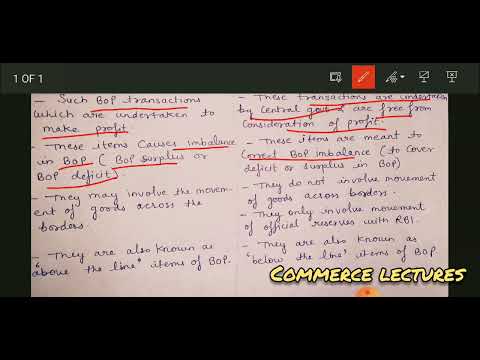 1 OF 1
- Such BOP transactions
which are undertaken to
make profit.
- These items causes imbalance
in BOP ( BOP surplus or
BOP deficit)
- They may involve the movem-
ent of goods across the
borders.
- They are also known as
'above the line' items of BOP.
- These transactions are undertaken
by Central govt & are free from
consideration of profit.
- These items are meant to
correct BOP imbalance (to cover
deficit or surplus in BOP)
- They do not involve movement
of goods across borders.
- They only involve movement
of official reserves with RBI.
- They are also known as
'below the line' items of BOP.
COMMERCE LECTURES